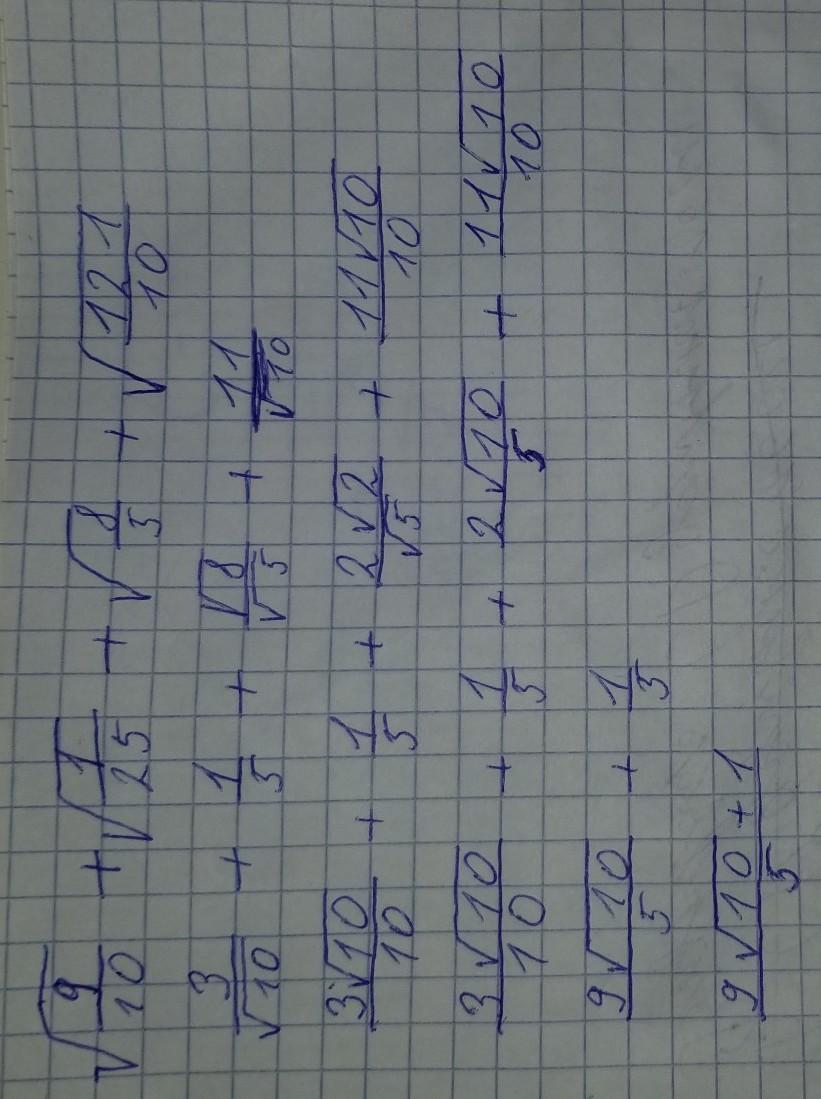 √(9/10) + √(1/25) + √(8/5) + √(121/10)
3/√10 + 1/5 + √8/√5 + 11/√10
3√10/10 + 1/5 + 2√2/√5 + 11√10/10
3√10/10 + 1/5 + 2√10/5 + 11√10/10
9√10/5 + 1/5
9√10+1/5